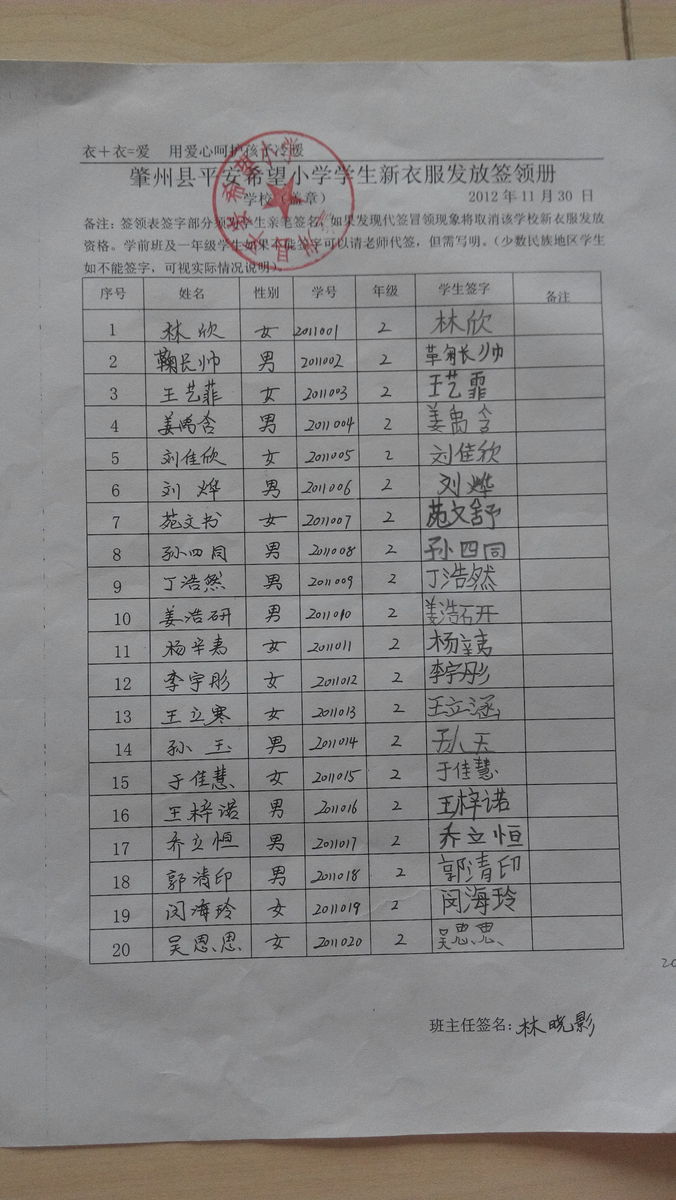 衣＋衣=爱 用爱心呵护孩子冷暖
肇州县平安希望小学学生新衣服发放签领册
学校（盖章） 2012年11月30日
备注：签领表签字部分须为学生亲笔签名，如果发现代签冒领现象将取消该学校新衣服发放
资格。学前班及一年级学生如果不能签字可以请老师代签，但需写明。（少数民族地区学生
如不能签字，可视实际情况说明）。
序号 姓名 性别 学号 年级 学生签字 备注
1 林欣 女 2011001 2 林欣
2 鞠长帅 男 2011002 2 鞠长帅
3 王艺菲 女 2011003 2 王艺霏
4 姜禹含 男 2011004 2 姜禹含
5 刘佳欣 女 2011005 2 刘佳欣
6 刘烨 男 2011006 2 刘烨
7 苑文书 女 2011007 2 苑文舒
8 孙四同 男 2011008 2 孙四同
9 丁浩然 男 2011009 2 丁浩然
10 姜浩研 男 2011010 2 姜浩研
11 杨辛夷 女 2011011 2 杨辛夷
12 李宇彤 女 2011012 2 李宇彤
13 王立寒 女 2011013 2 王立涵
14 孙玉 男 2011014 2 孙天
15 于佳慧 女 2011015 2 于佳慧
16 王梓诺 男 2011016 2 王梓诺
17 乔立恒 男 2011017 2 乔立恒
18 郭清印 男 2011018 2 郭清印
19 闵海玲 女 2011019 2 闵海玲
20 吴思思 女 2011020 2 吴思思
班主任签名：林晓影